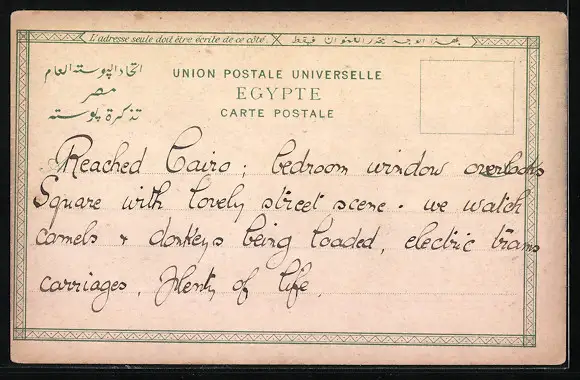 L'adresse seule doit être écrite de ce côté.
بهذا الوجه يحرر العنوان فقط
اتحاد البوستة العام
مصر
تذكرة بوستة
UNION POSTALE UNIVERSELLE
EGYPTE
CARTE POSTALE
Reached Cairo; bedroom window overlooks
Square with lovely street scene. we watch
camels & donkeys being loaded, electric trams
carriages. Plenty of life.